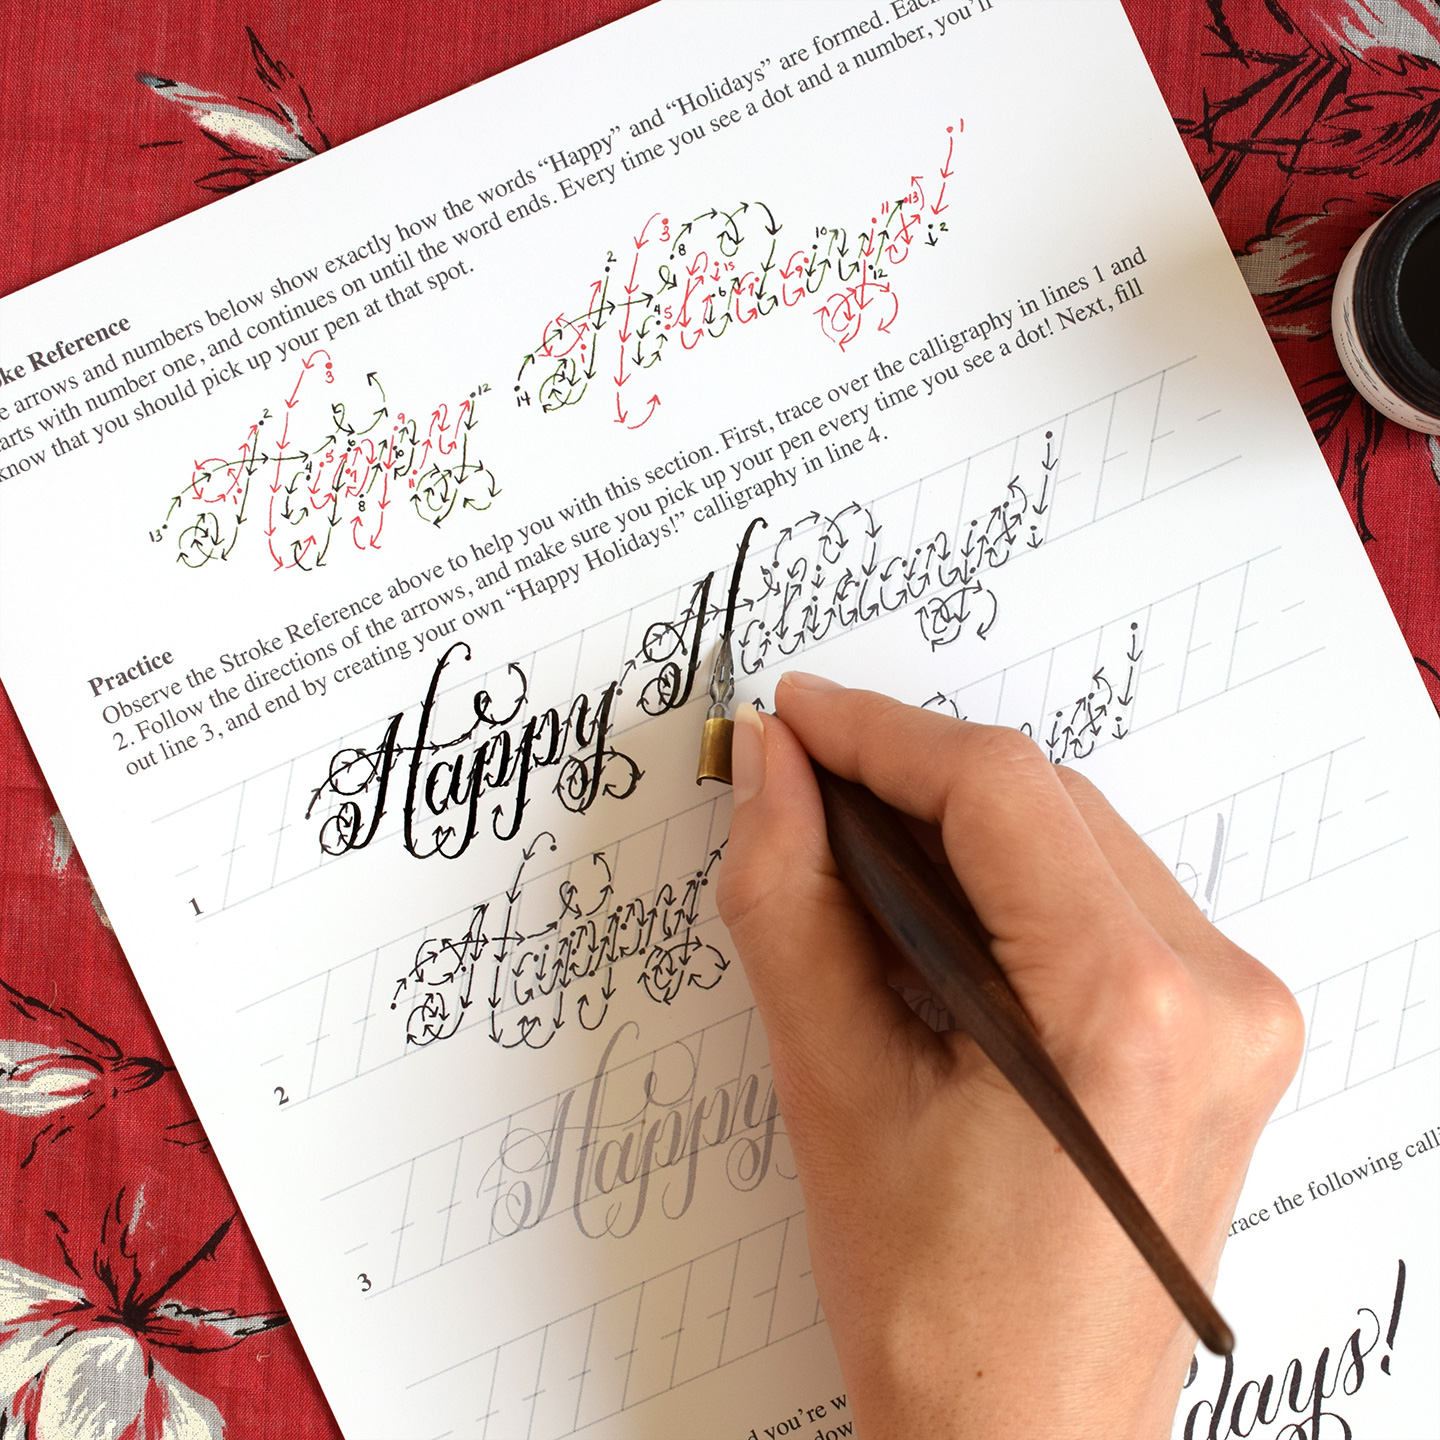 ke Reference
e arrows and numbers below show exactly how the words “Happy” and “Holidays” are formed. Each
arts with number one, and continues on until the word ends. Every time you see a dot and a number, you’ll
know that you should pick up your pen at that spot.
1 2 3 4 5 8 9 10 11 12 13
1 2 3 4 5 6 7 8 9 10 11 12 13 14 15
Practice
Observe the Stroke Reference above to help you with this section. First, trace over the calligraphy in lines 1 and
2. Follow the directions of the arrows, and make sure you pick up your pen every time you see a dot! Next, fill
out line 3, and end by creating your own “Happy Holidays!” calligraphy in line 4.
1 Happy H
2
3 Happy
race the following calli
days!
d you’re w
dow